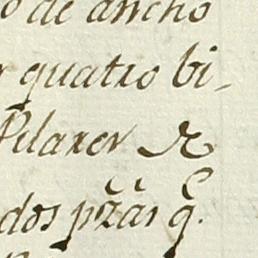 o de ancho
quatro bi-
Pilarer
dos pzas q.